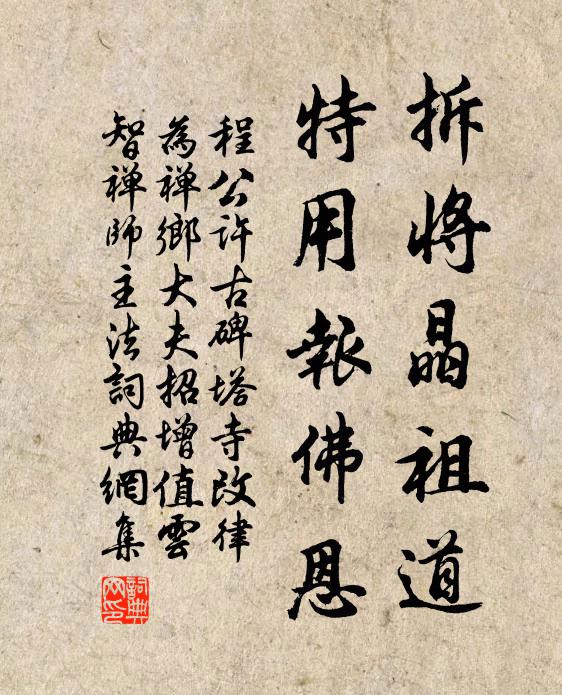 拆將晶祖道
特用報佛恩
程公許古碑塔寺改律
為禅鄉大夫招增值雲
智禅師主法詞典網集
詞典網印